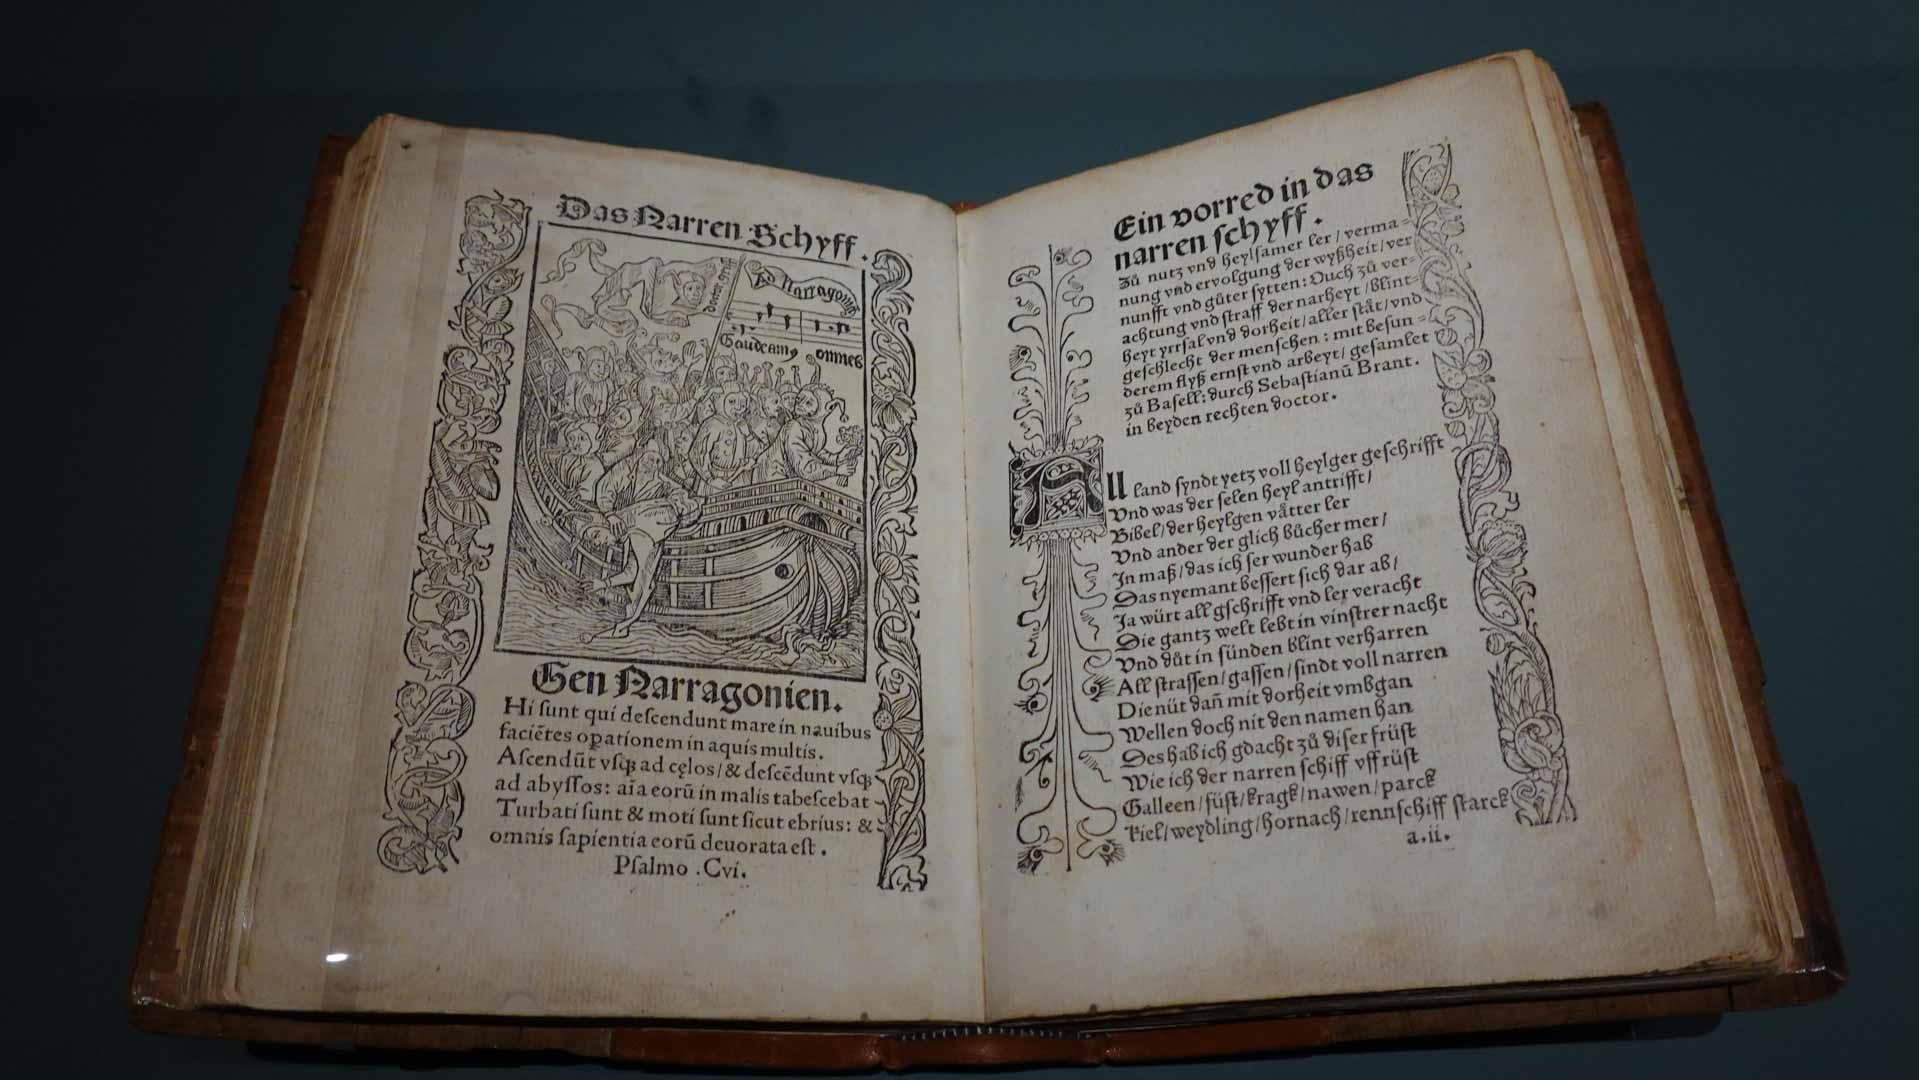 Das Narren Schyff.
doctor griff
Ad Narragoniā
Gaudeamꝰ omnes
Gen Narragonien.
Hi ſunt qui deſcendunt mare in nauibus
faciētes oꝑationem in aquis multis.
Aſcendūt vſqꝫ ad cęlos/ & deſcēdunt vſqꝫ
ad abyſſos: aīa eorū in malis tabeſcebat
Turbati ſunt & moti ſunt ſicut ebrius: &
omnis ſapientia eorū deuorata eſt.
Pſalmo .Cvi.
Ein vorred in das
narren ſchyff.
Zů nutz vnd heylſamer ler/ verma⸗
nung vnd ervolgung der wyßheit/ ver
nunfft vnd gůter ſytten: Ouch zů ver⸗
achtung vnd ſtraff der narheyt/ blint⸗
heyt yrrſal vnd dorheit/ aller ſtåt/ vnd
geſchlecht der menſchen: mit beſun⸗
derem flyß ernſt vnd arbeyt/ geſamlet
zů Baſell: durch Sebaſtianū Brant.
in beyden rechten doctor.
All land ſyndt yetz voll heylger geſchrifft
Vnd was der ſelen heyl antrifft/
Bibel/ der heylgen våtter ler
Vnd ander der glich bůcher mer/
In maß/ das ich ſer wunder hab
Das nyemant beſſert ſich dar ab/
Ja würt all gſchrifft vnd ler veracht
Die gantz welt lebt in vinſtrer nacht
Vnd důt in ſünden blint verharren
All ſtraſſen/ gaſſen/ ſindt voll narren
Die nüt dañ mit dorheit vmbgan
Wellen doch nit den namen han
Des hab ich gdacht zů diſer früſt
Wie ich der narren ſchiff vff rüſt
Galleen/ füſt/ kragk/ nawen/ parck
Kiel/ weydling/ hornach/ rennſchiff ſtarck
a.ii.